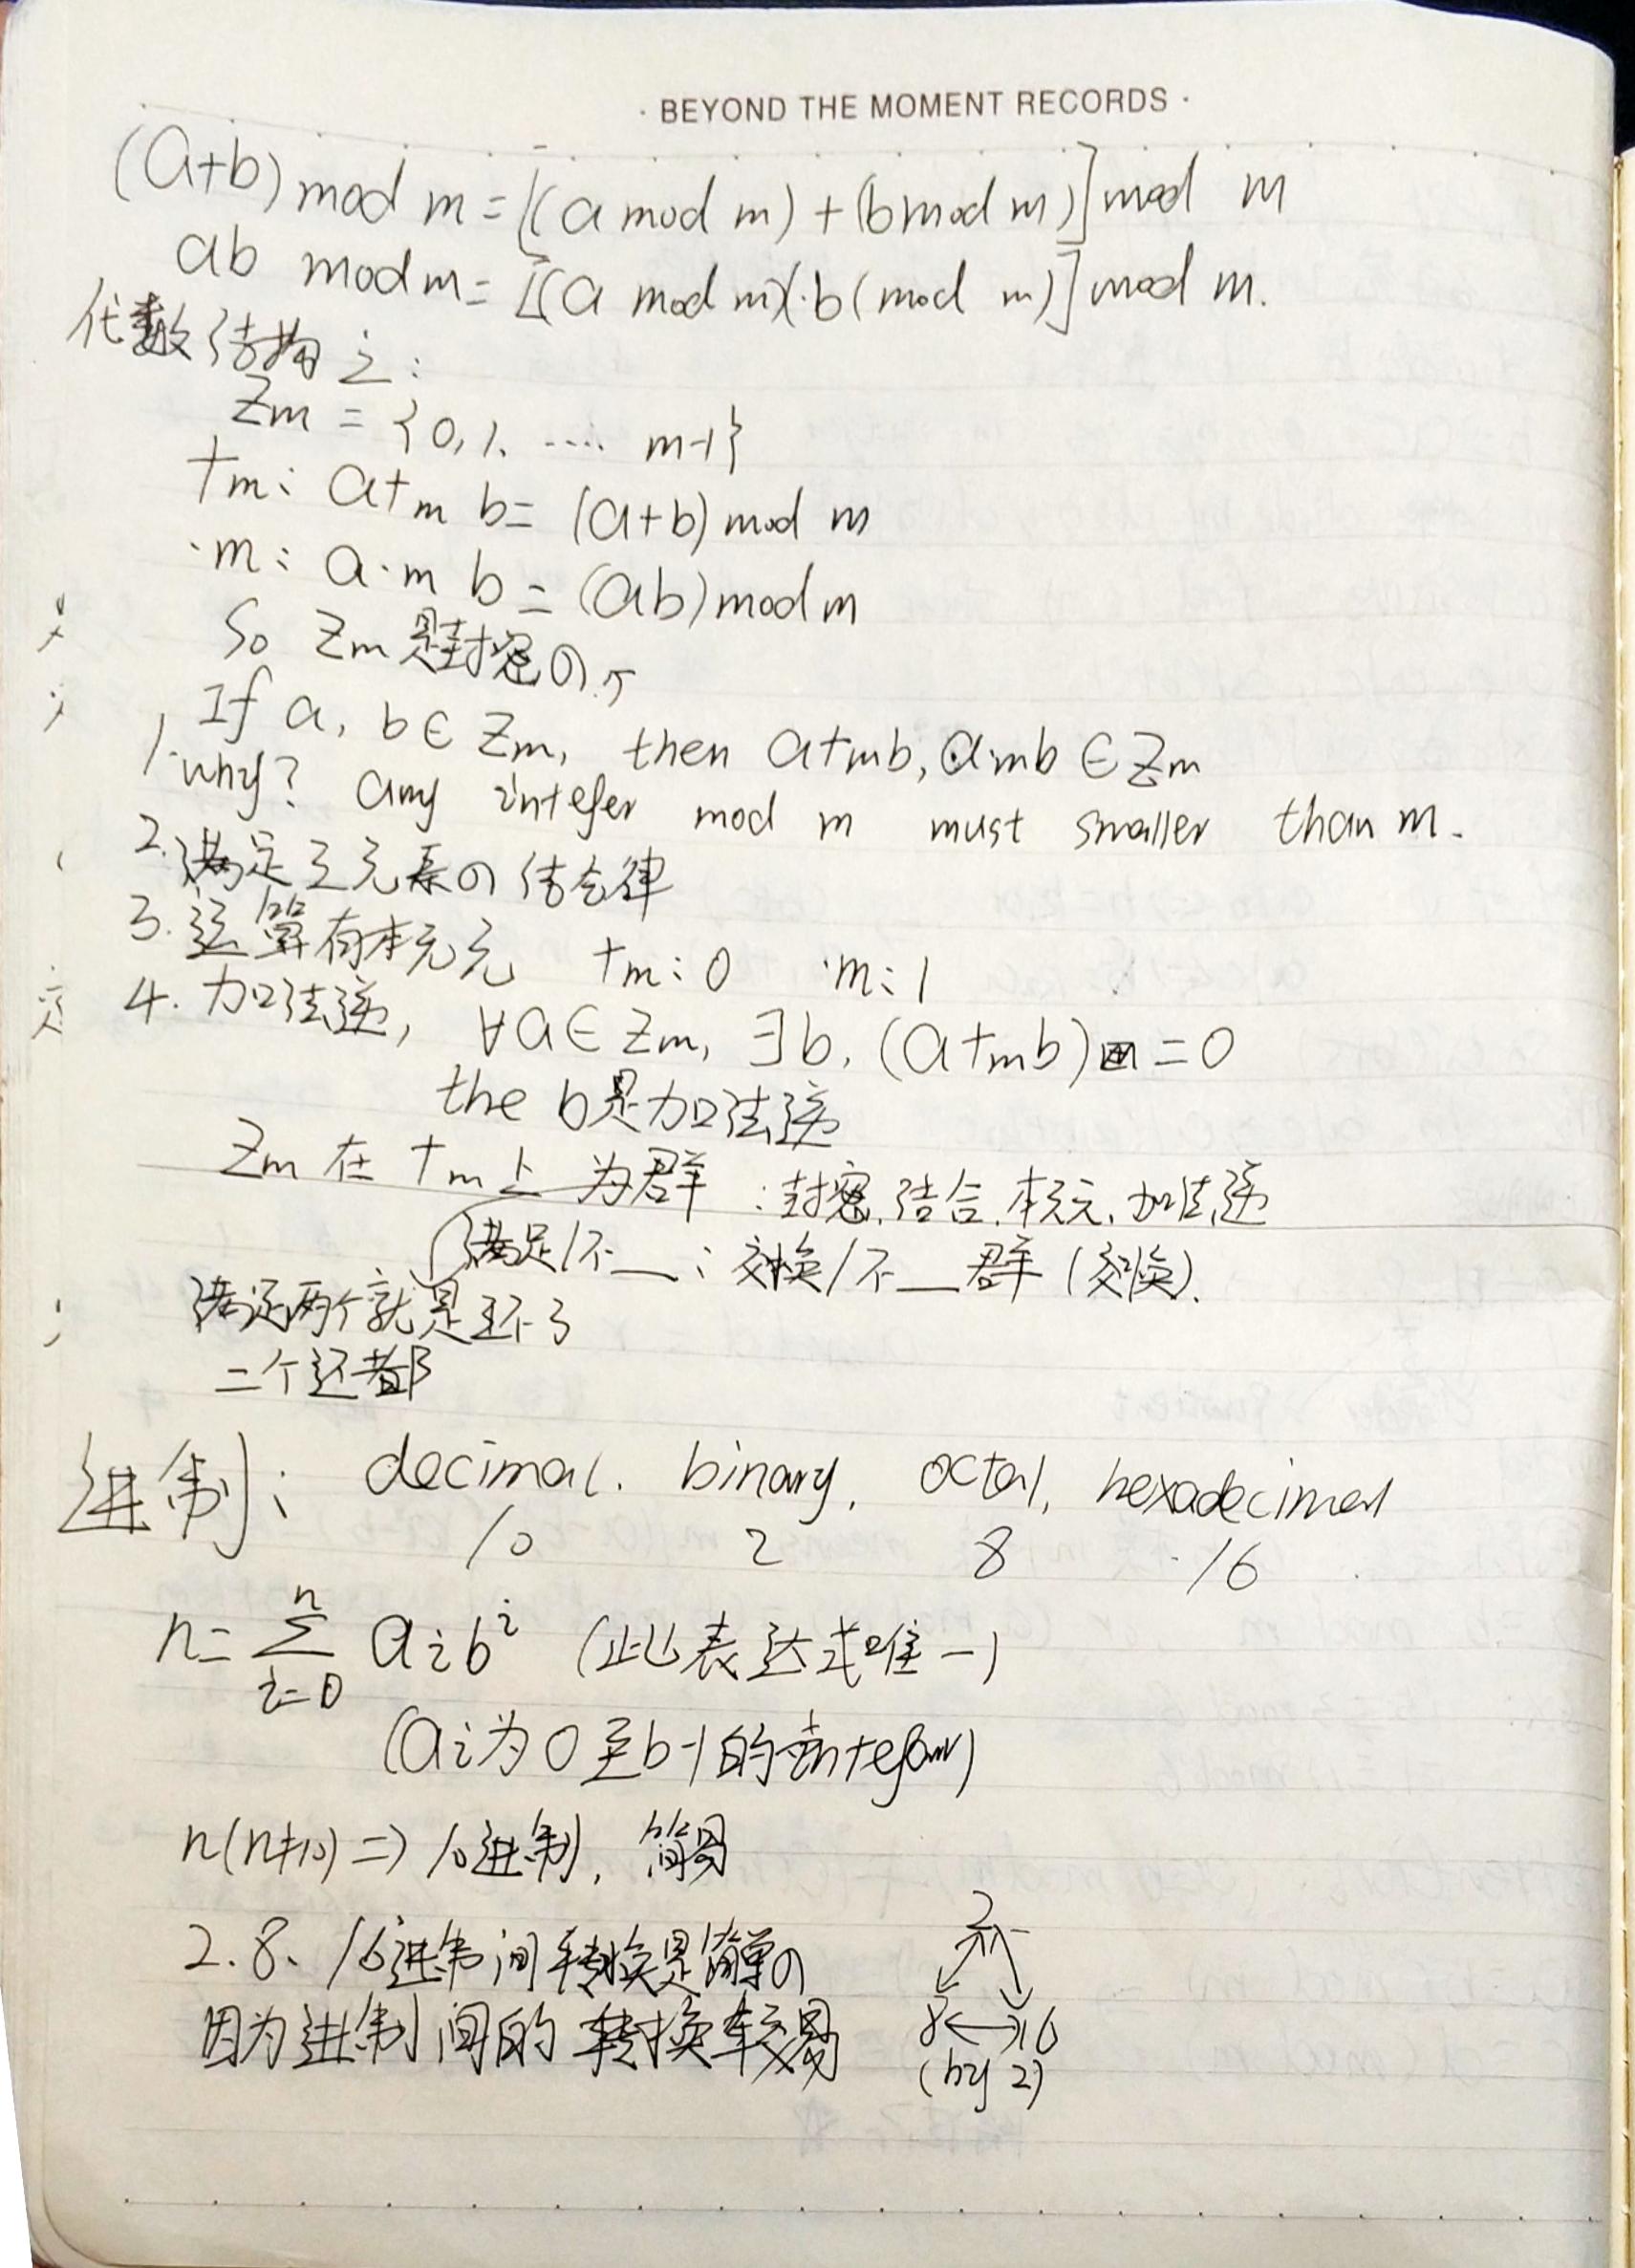 · BEYOND THE MOMENT RECORDS ·
(a+b) mod m = [(a mod m) + (b mod m)] mod m
ab mod m = [(a mod m)·b(mod m)] mod m.
代数结构之:
Zm = {0, 1. .... m-1}
+m: a +m b = (a+b) mod m
·m: a ·m b = (ab) mod m
So Zm 是封密の
If a, b ∈ Zm, then a+mb, a·mb ∈ Zm
1. why? any intefer mod m must smaller than m.
2. 满足三元素の结合律
3. 运算有本元元 +m: 0 ·m: 1
4. 加法逆, ∀a ∈ Zm, ∃b, (a+mb) = 0
the b是加法逆
Zm 在 +m上 为群 : 封密. 结合. 本元元. 加法逆
满足/不__ : 交换/不__群 (交换).
满足两个就是环了
二个还都
进制: decimal. binary, octal, hexadecimal
10 2 8 16
n = ∑ⁿᵢ₌₀ aᵢbⁱ (此表达式唯一)
(ai为0至b-1的integer)
n(n≠10) => 10进制, 简易
2. 8、16进制间转换是简单の
因为进制间的转换较易
2
8 ↔ 16
(by 2)